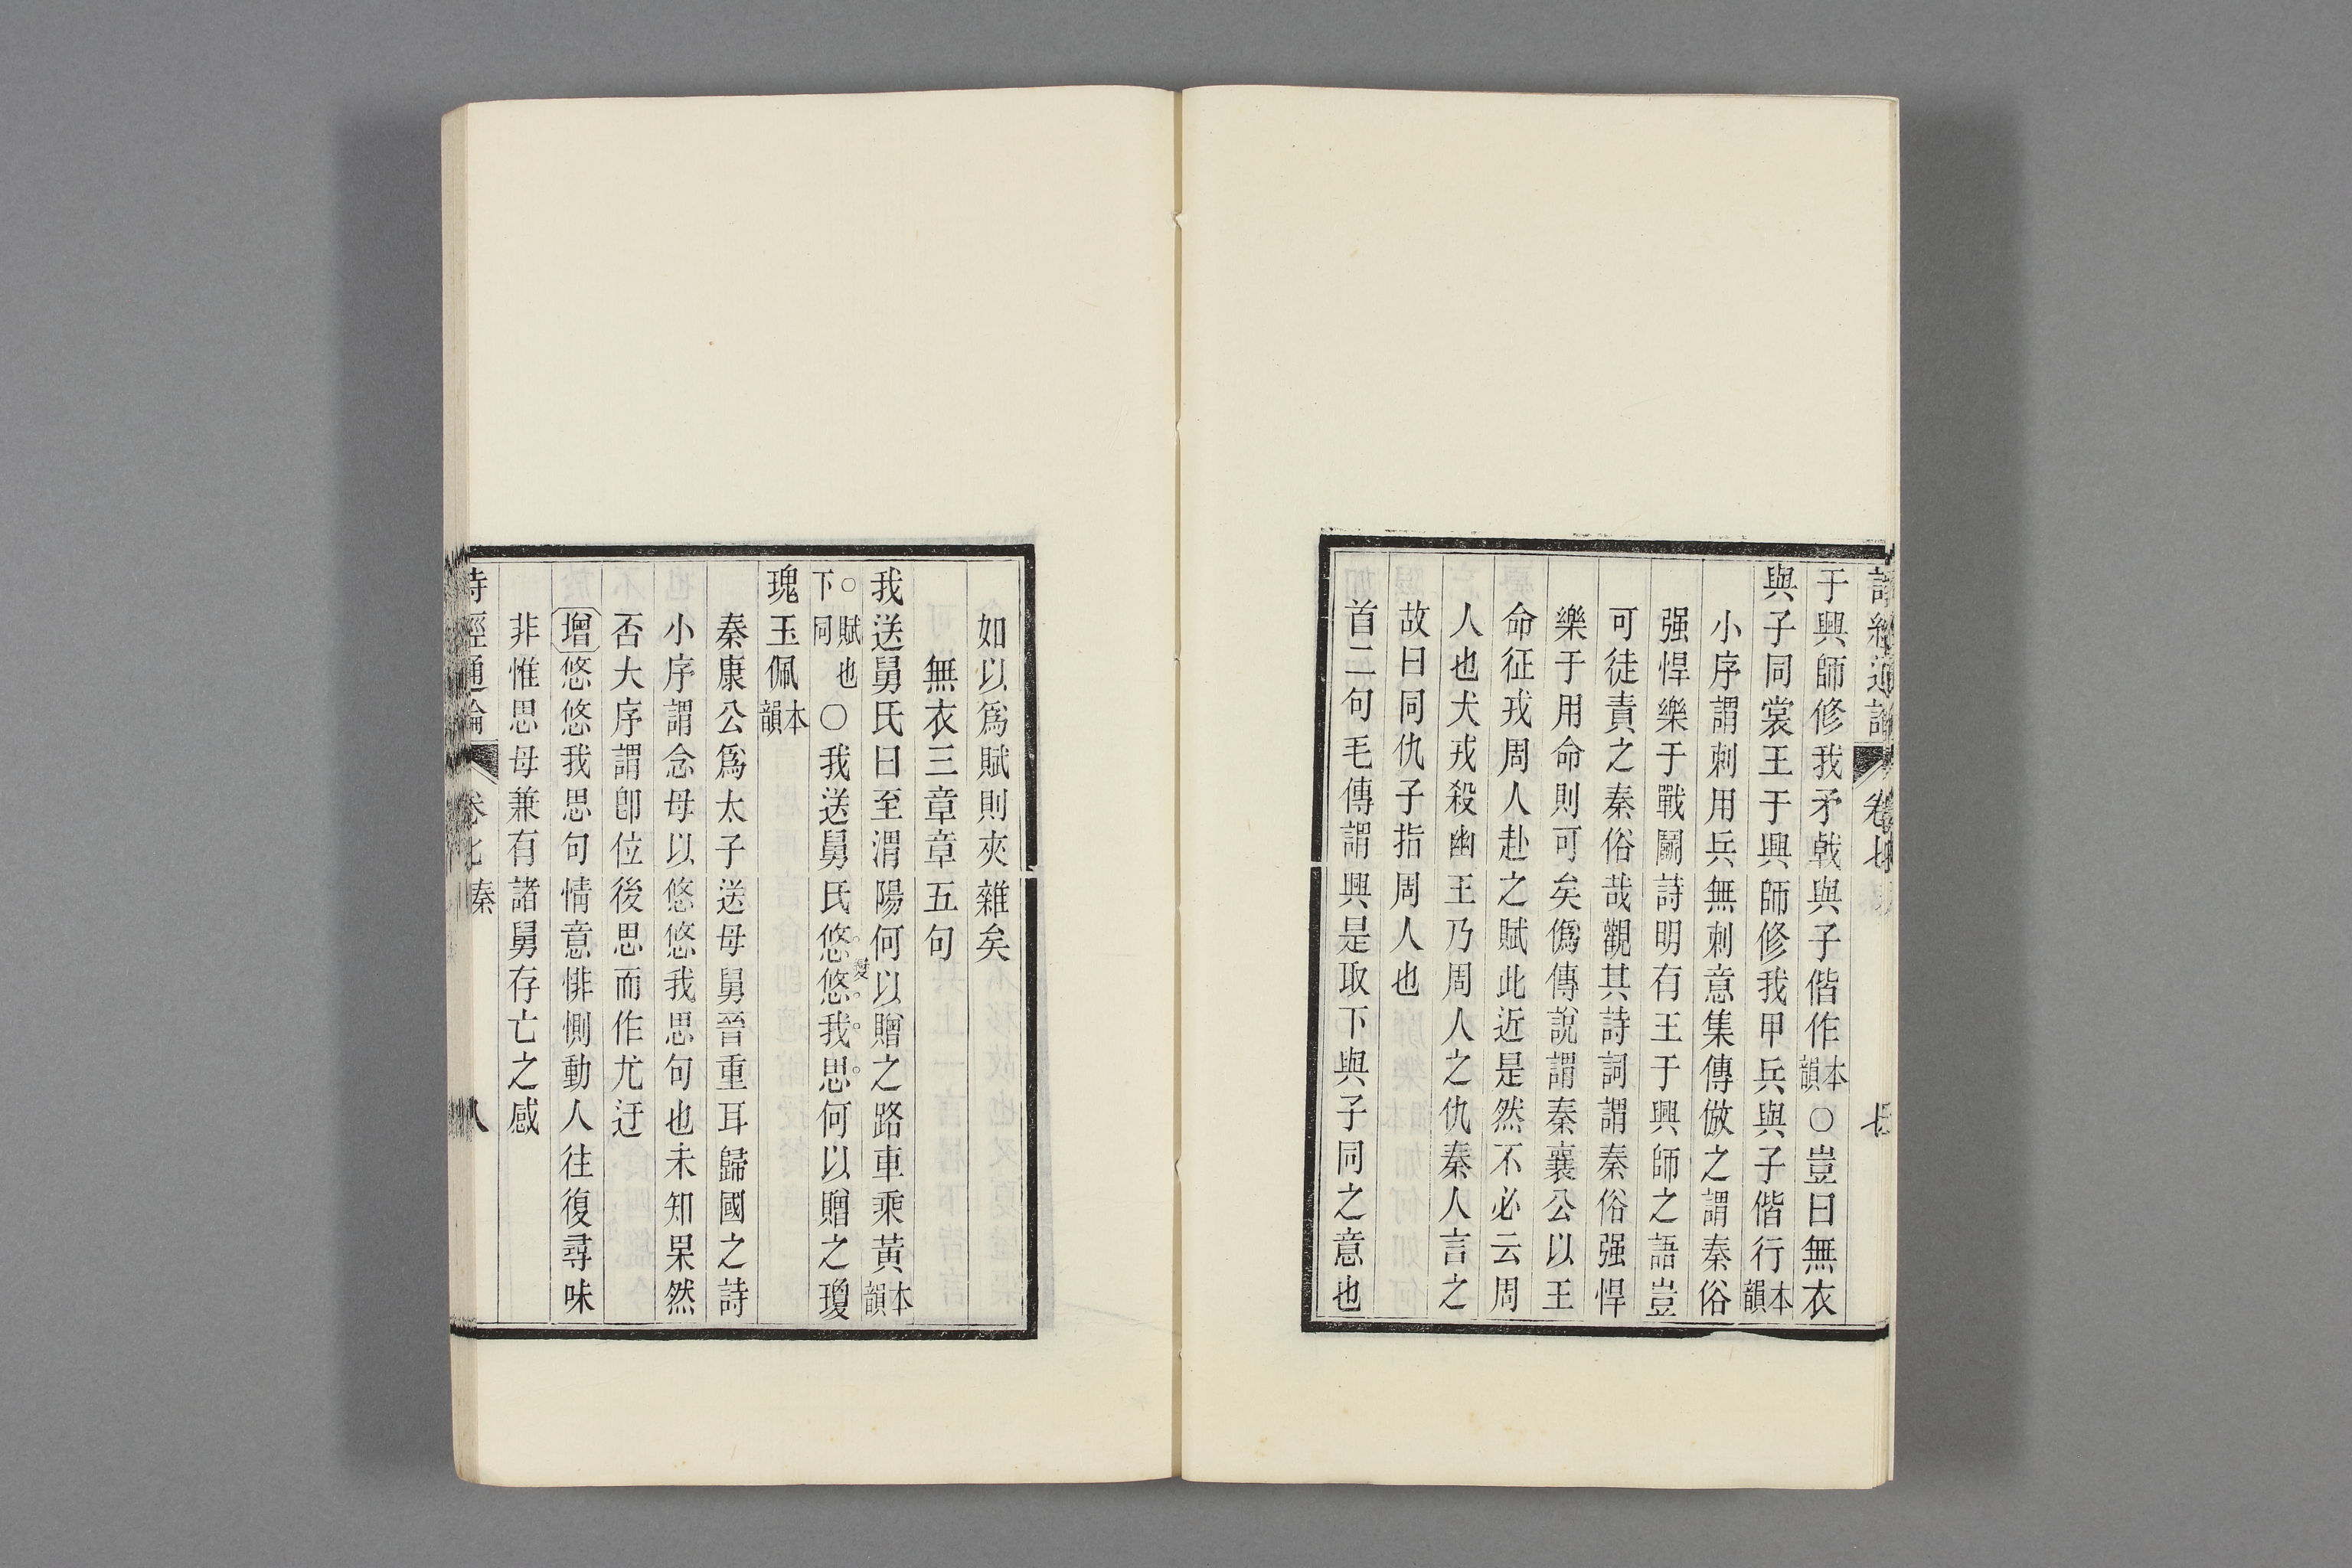 詩經通論 卷七 七
于興師修我矛戟與子偕作本韻○豈曰無衣
與子同裳王于興師修我甲兵與子偕行本韻
小序謂刺用兵無刺意集傳倣之謂秦俗
强悍樂于戰鬬詩明有王于興師之語豈
可徒責之秦俗哉觀其詩詞謂秦俗强悍
樂于用命則可矣僞傳說謂秦襄公以王
命征戎周人赴之賦此近是然不必云周
人也犬戎殺幽王乃周人之仇秦人言之
故曰同仇子指周人也
首二句毛傳謂興是取下與子同之意也
如以爲賦則夾雜矣
無衣三章章五句
我送舅氏曰至渭陽何以贈之路車乘黃本韻
○賦也下同○我送舅氏悠悠我思何以贈之瓊
瑰玉佩本韻
秦康公爲太子送母舅晉重耳歸國之詩
小序謂念母以悠悠我思句也未知果然
否大序謂卽位後思而作尤迂
增悠悠我思句情意悱惻動人往復尋味
非惟思母兼有諸舅存亡之感
詩經通論 卷七 秦 八